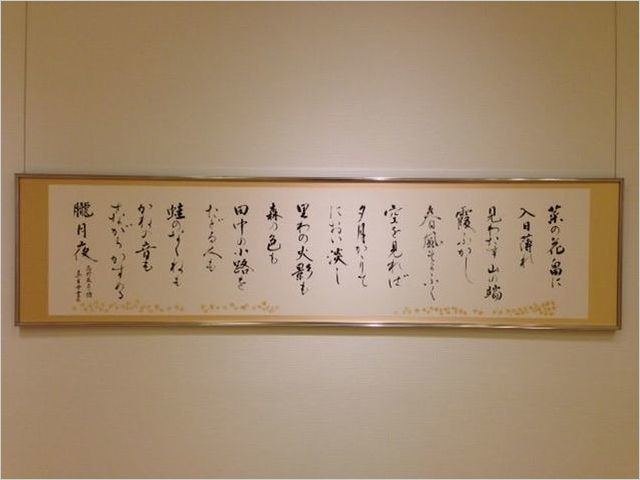 菜の花畠に
入日薄れ
見わたす山の端
霞ふかし
春風そよふく
空を見れば
夕月かゝりて
におい淡し
里わの火影も
森の色も
田中の小路を
たどる人も
蛙のなくねも
かねの音も
さながらかすめる
朧月夜
高野辰之詩